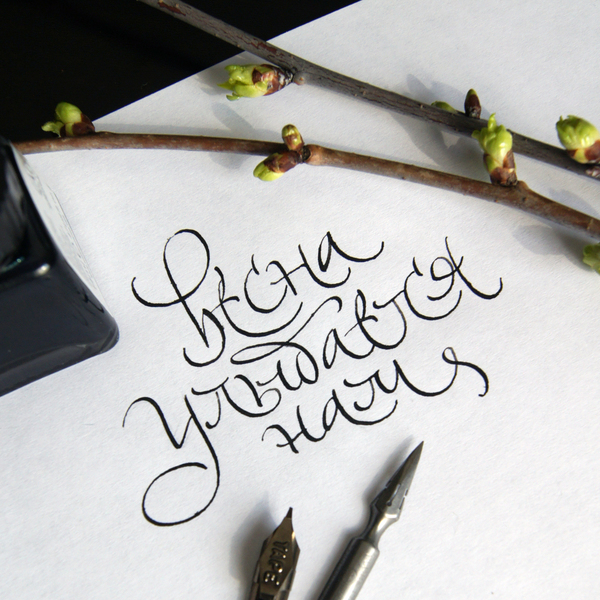 весна
улыбается
нам